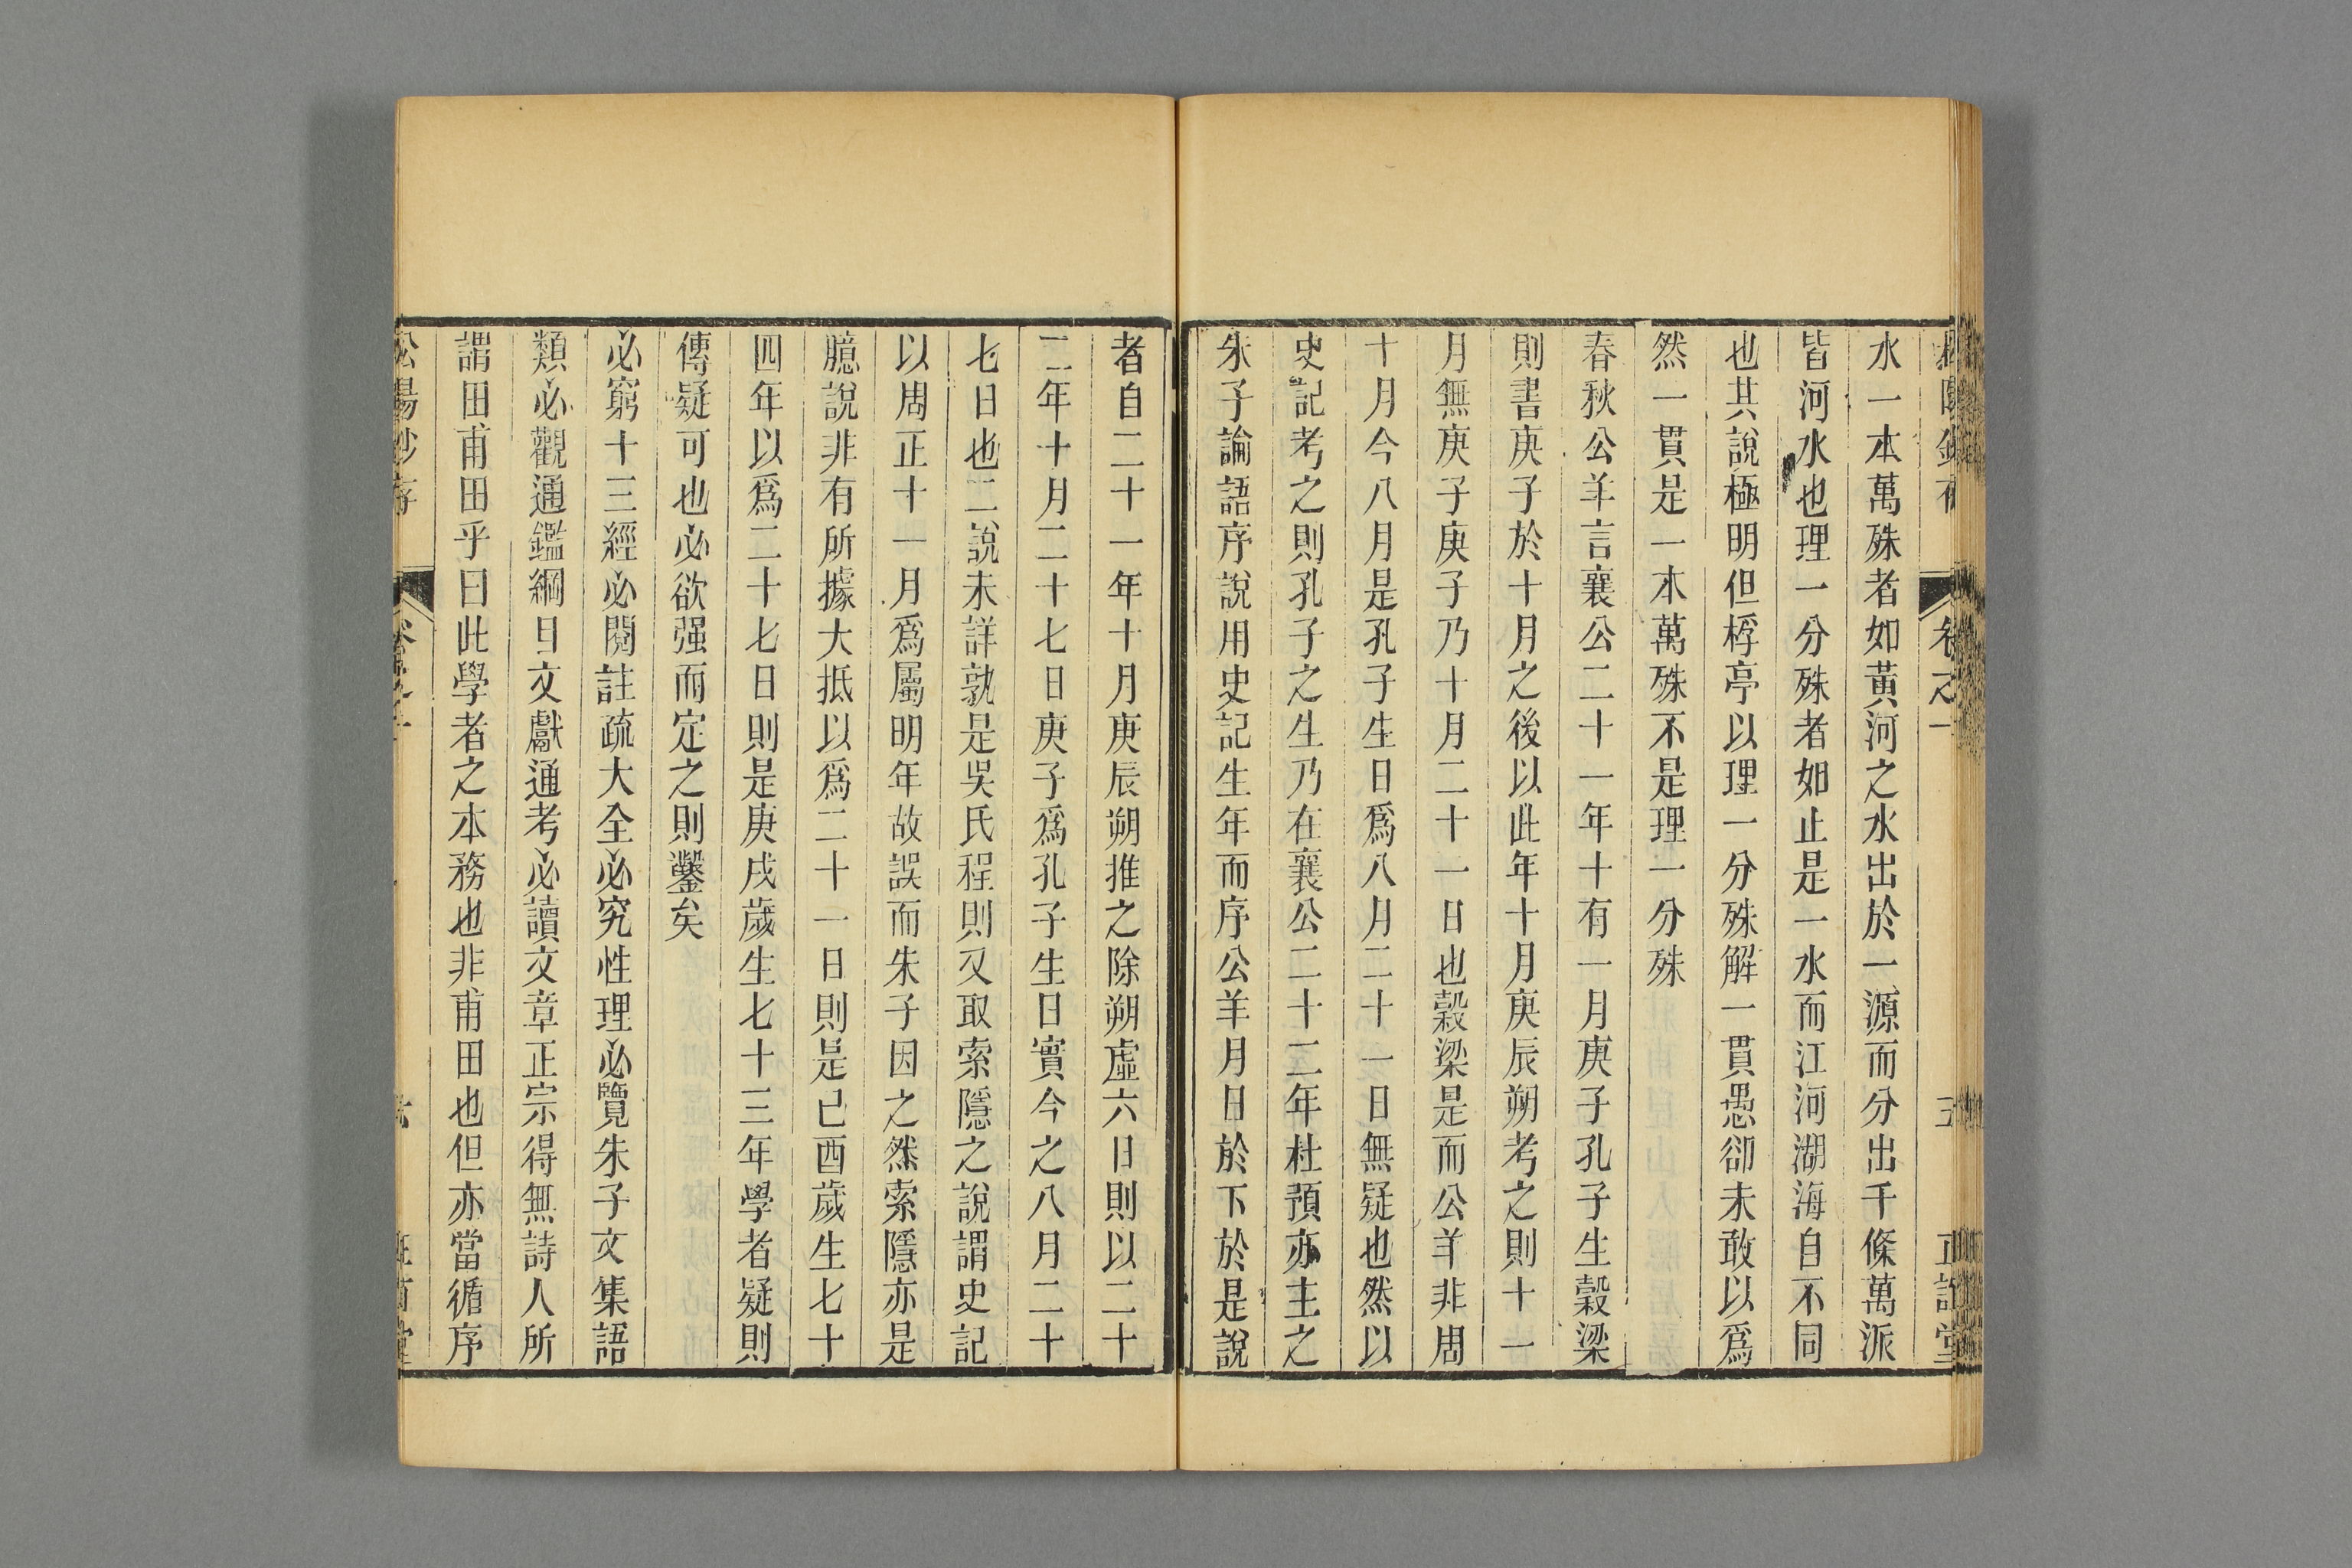 卷之一
五
正誼堂
水一本萬殊者如黃河之水出於一源而分出千條萬派
皆河水也理一分殊者如止是一水而江河湖海自不同
也其說極明但桴亭以理一分殊解一貫愚卻未敢以爲
然一貫是一本萬殊不是理一分殊
春秋公羊言襄公二十一年十有一月庚子孔子生穀梁
則書庚子於十月之後以此年十月庚辰朔考之則十一
月無庚子庚子乃十月二十一日也穀梁是而公羊非周
十月今八月是孔子生日爲八月二十一日無疑也然以
史記考之則孔子之生乃在襄公二十二年杜預亦主之
朱子論語序說用史記生年而序公羊月日於下於是說
者自二十一年十月庚辰朔推之除朔虛六日則以二十
二年十月二十七日庚子爲孔子生日實今之八月二十
七日也二說未詳孰是吳氏程則又取索隱之說謂史記
以周正十一月爲屬明年故誤而朱子因之然索隱亦是
臆說非有所據大抵以爲二十一日則是已酉歲生七十
四年以爲二十七日則是庚戌歲生七十三年學者疑則
傳疑可也必欲强而定之則鑿矣
必窮十三經必閱註疏大全必究性理必覽朱子文集語
類必觀通鑑綱目文獻通考必讀文章正宗得無詩人所
謂田甫田乎曰此學者之本務也非甫田也但亦當循序
松陽鈔存
卷之一
六
正誼堂